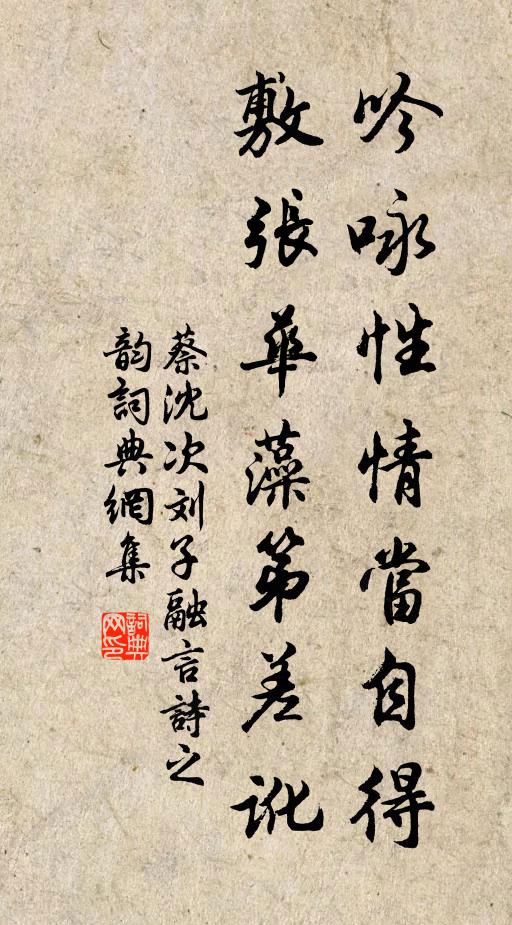 吟咏性情當自得
敷張華藻第差訛
蔡沈次刘子融言詩之
韵詞典網集
詞典网印